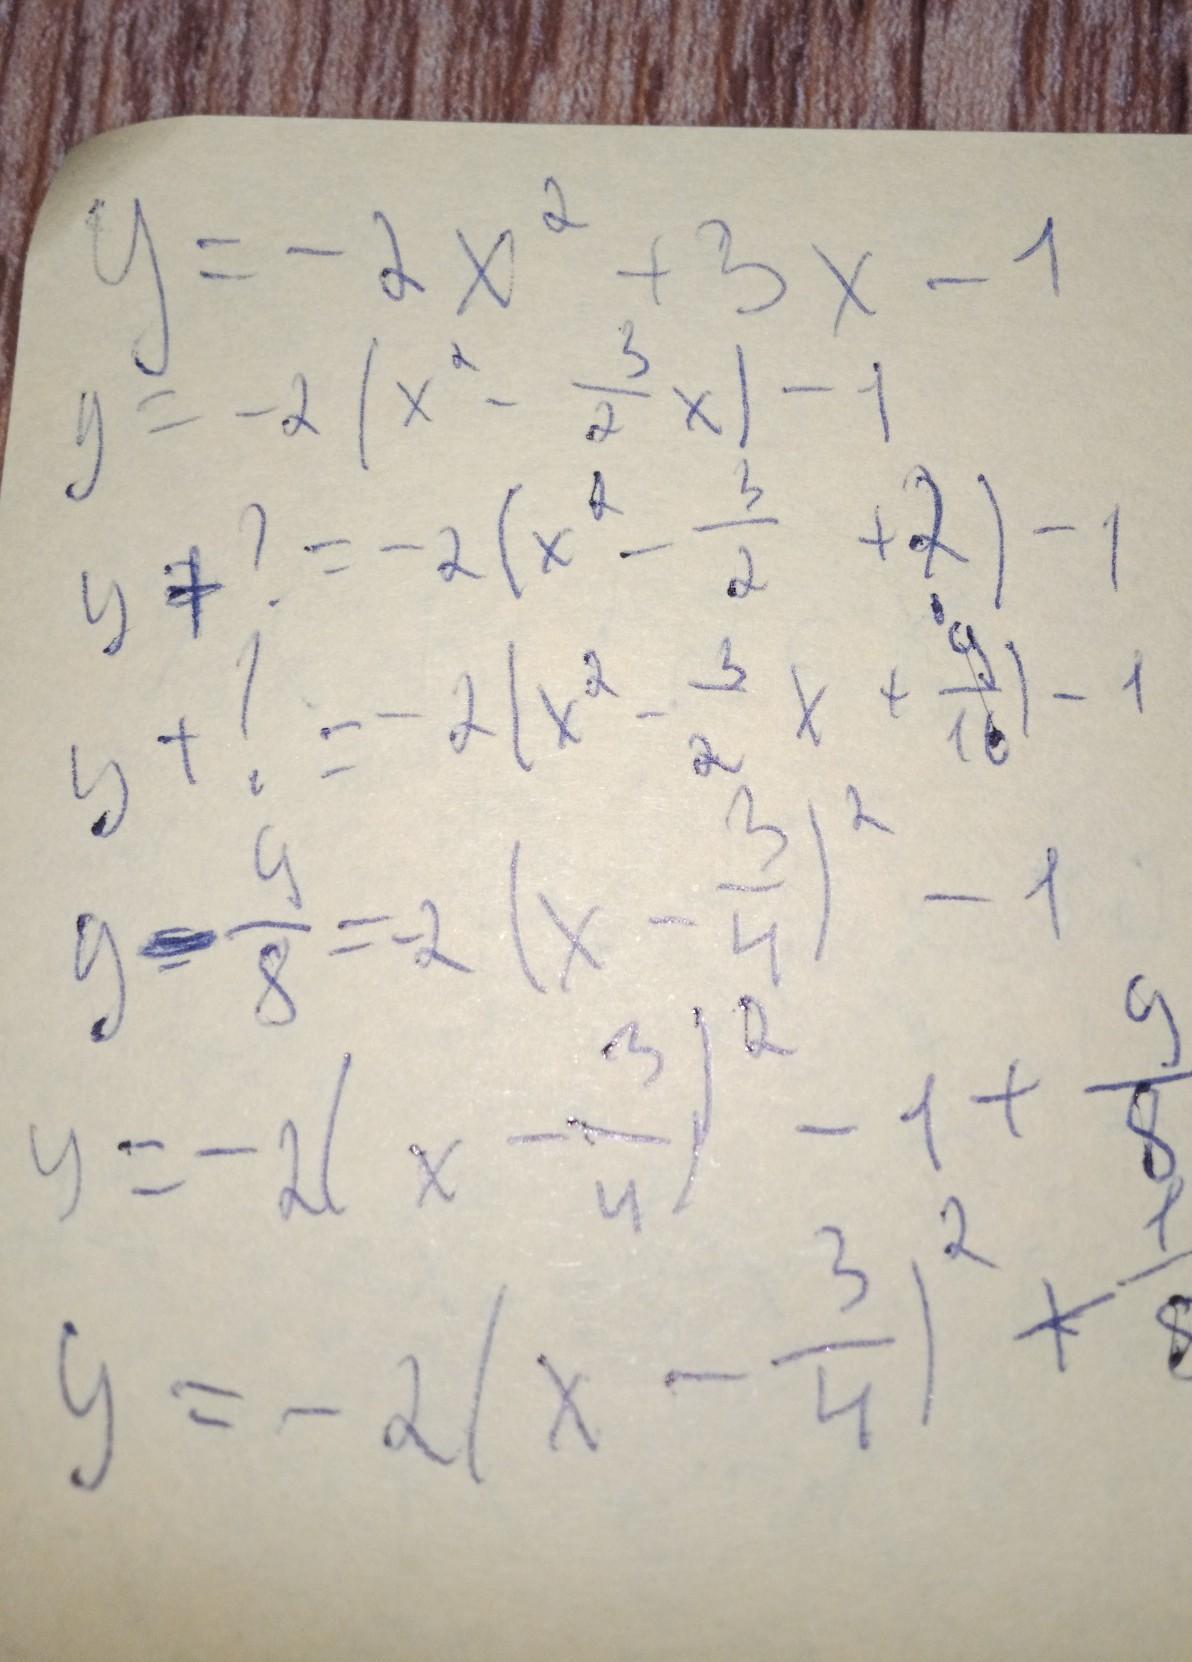 y = -2x² + 3x - 1
y = -2(x² - 3/2 x) - 1
y + ? = -2(x² - 3/2 + ?) - 1
y + ? = -2(x² - 3/2 x + 9/16) - 1
y - 9/8 = -2(x - 3/4)² - 1
y = -2(x - 3/4)² - 1 + 9/8
y = -2(x - 3/4)² + 1/8